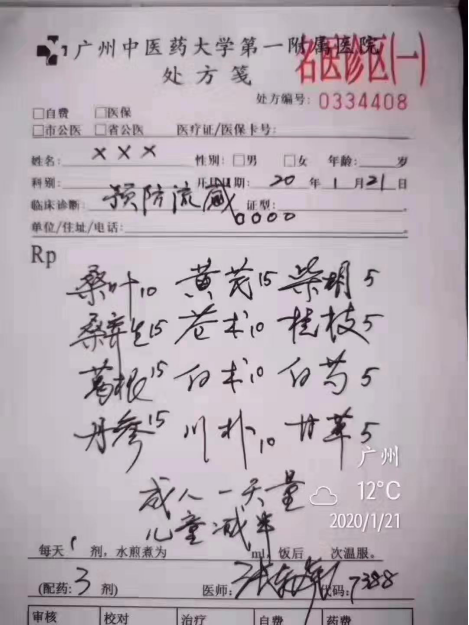 广州中医药大学第一附属医院
名医诊区(一)
处方笺
处方编号: 0334408
□自费 □医保
□市公医 □省公医 医疗证/医保卡号:
姓名: XXX 性别: □男 □女 年龄: 岁
科别: 开具日期: 20年1月21日
临床诊断: 预防流感 证型:
0000
单位/住址/电话:
Rp
桑叶10 黄芪15 柴胡5
桑寄生15 苍术10 桂枝5
葛根15 白术10 白芍5
丹参15 川朴10 甘草5
成人一天量
儿童减半
广州
12°C
2020/1/21
每天1剂,水煎煮为 ml,饭后 次温服。
(配药:3剂) 医师: 代码:7388
审核 校对 治疗 自费 药费